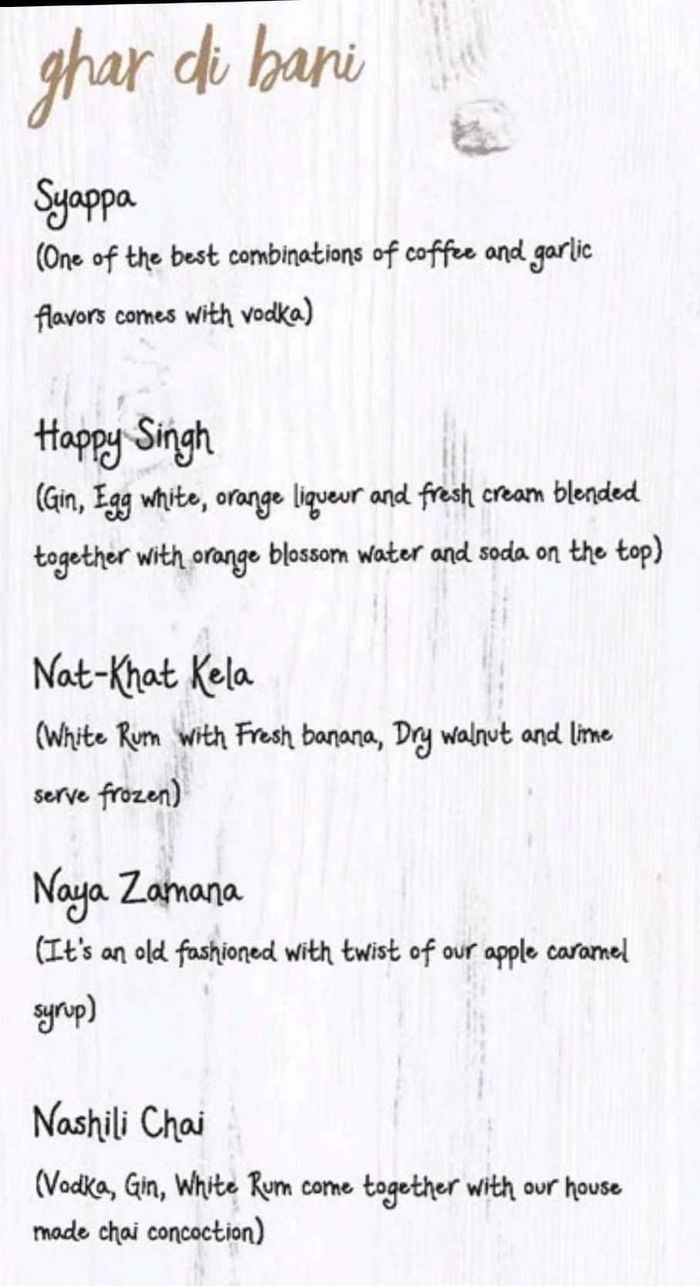 ghar di bani
Syappa
(One of the best combinations of coffee and garlic
flavors comes with vodka)
Happy Singh
(Gin, Egg white, orange liqueur and fresh cream blended
together with orange blossom water and soda on the top)
Nat-Khat Kela
(White Rum with Fresh banana, Dry walnut and lime
serve frozen)
Naya Zamana
(It's an old fashioned with twist of our apple caramel
syrup)
Nashili Chai
(Vodka, Gin, White Rum come together with our house
made chai concoction)